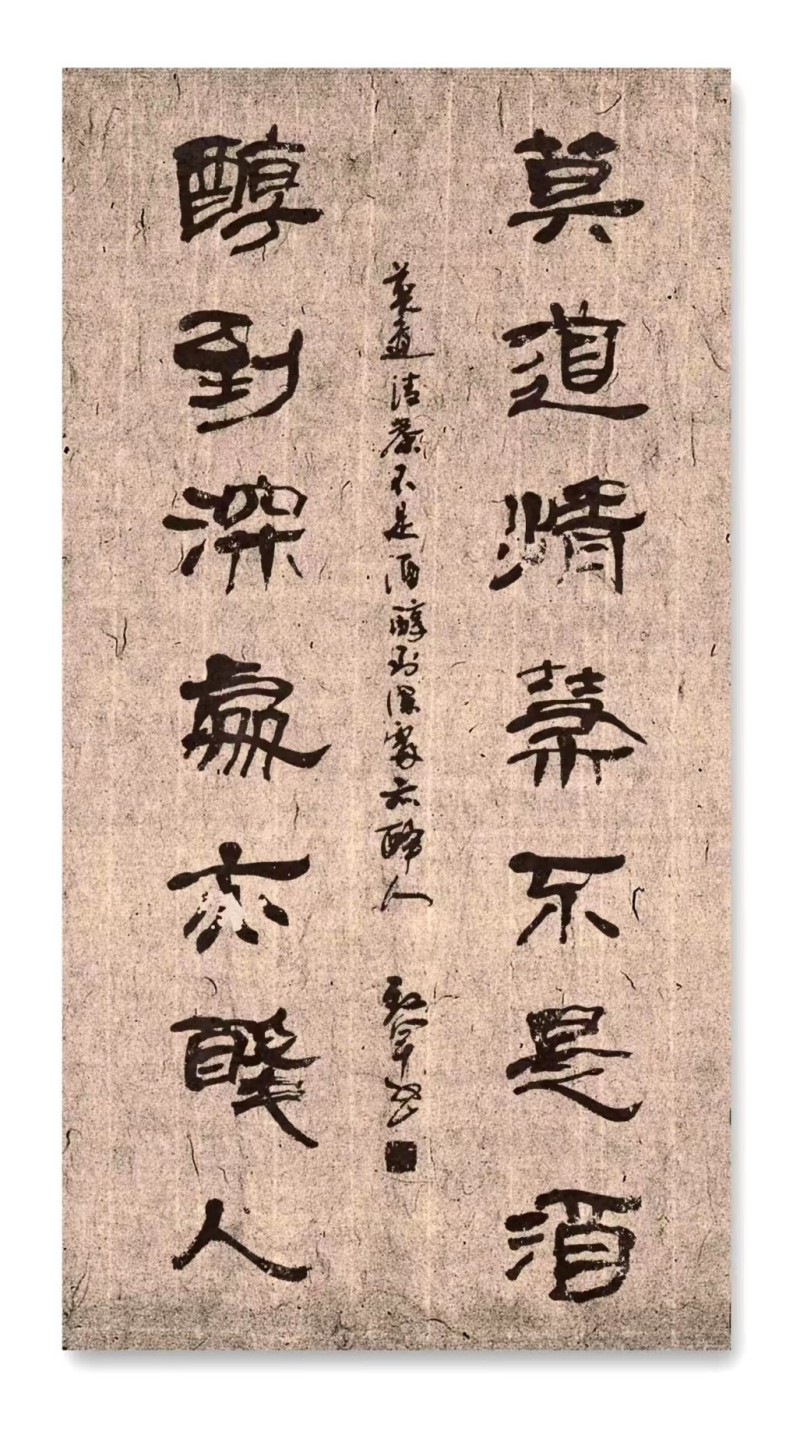 莫道清茶不是酒
莫道清茶不是酒醇到深處亦醉人
醇到深處亦醉人